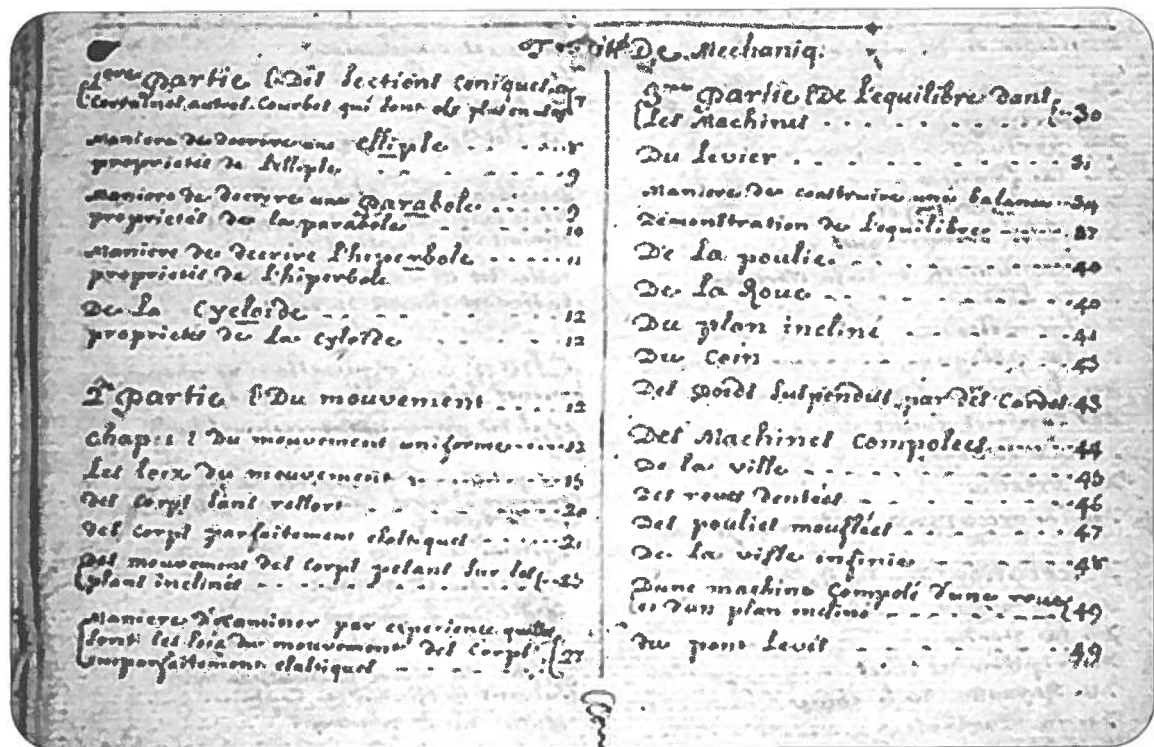 Traité De Mechaniq.
1ere Partie Des Sections Coniques
Certaines autres Courbes qui sont 7
Maniere de decrire une Ellipse 8
proprietés de L'ellipse 9
Maniere de decrire une Parabole 9
proprietés de la parabole 10
Maniere de decrire l'hiperbole 11
proprietés de l'hiperbole
De la Cycloïde 12
proprietés de la cyloïde 12
2e Partie Du mouvement 12
Chap. 1 Du mouvement uniforme 12
Les loix du mouvement 15
des corps sans ressort 20
des corps parfaitement elastiques 21
Des mouvement des corps pesans sur les
plans inclinés 23
Maniere d'examiner par experience quelles
sont les loix du mouvement des Corps
imparfaitement elastiques 27
3me Partie De L'equilibre dans
Les Machines 30
Du Levier 31
Maniere de construire une balance 34
Démonstration de L'equilibre 37
De la poulie 40
De la Roue 40
Du plan incliné 41
Du Coin 43
Des poids suspendus par des Cordes 43
Des Machines Composées 44
De la visse 45
Des roues dentées 46
Des poulies mouflées 47
De la visse infinie 48
Dune machine Composé d'une roue
et d'un plan incliné 49
du pont Levis 49